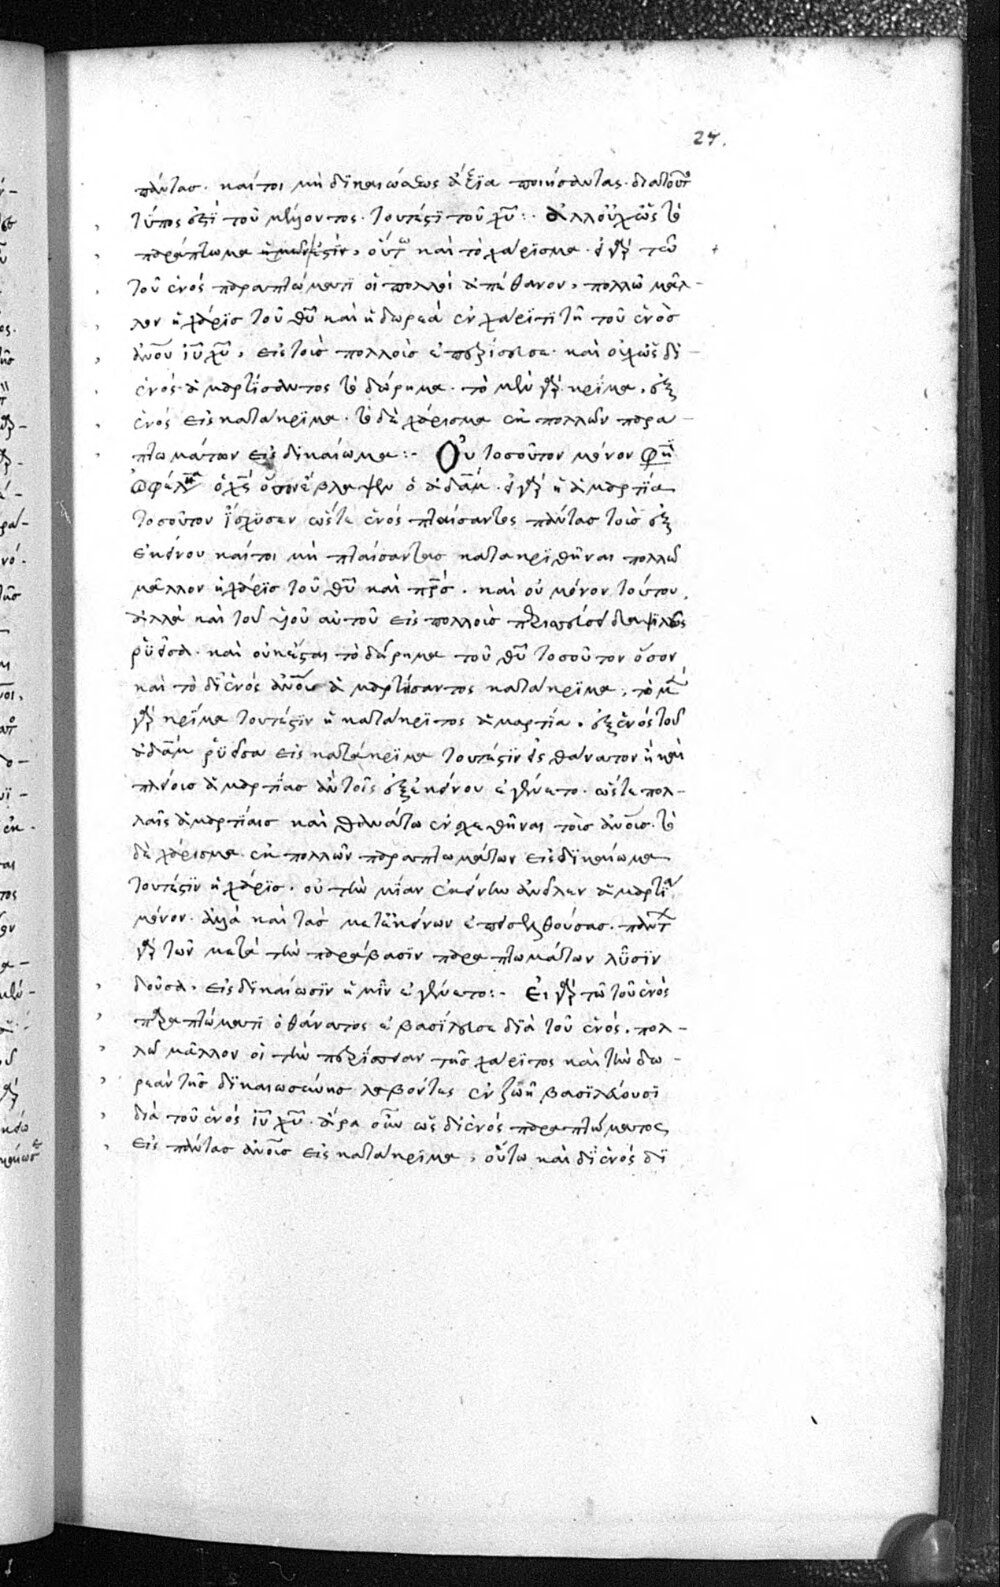 27.
πάντας. καίτοι μὴ δϊκαιώσεως ἄξϊα ποιήσαντας. διατοῦτ
τύπος ἐστὶ τοῦ μέλλοντος. τουτέστϊ τοῦ χῦ :· ἀλλοὐχὡς τὸ
παράπτωμα, οὕτω καὶ τὸ χάρϊσμα. εἰ γὰρ τῶ
τοῦ ἑνός παραπτώματϊ οἱ πολλοὶ ἀπέθανον, πολλῶ μᾶλ-
λον ἡ χάρϊς τοῦ θῦ καὶ ἡ δωρεὰ ἐν χάριτϊ τῆ τοῦ ἑνὸς
ἀνοῦ ἰῦ χῦ, εἰς τοὺς πολλοὺς ἐπερίσσευσε. καὶ οὐχὡς δι
ἑνός ἁμαρτίσαντος τὸ δώρημα. τὸ μὲν γὰρ κρίμα, ἐξ
ἑνός εἰς κατάκρϊμα. τὸ δὲ χάρισμα ἐκ πολλῶν παρα
πτωμάτων εἰς δικαίωμα :· Οὐ τοσοῦτον μόνον φη
ὠφέλησεν ὁ χς ὅσον ἔβλαψεν ὁ ἀδάμ. εἰ γὰρ ἡ ἁμαρτϊα
τοσοῦτον ἴσχϋσεν ὥστε ἑνός πταίσαντος πάντας τοὺς ἐξ
ἐκείνου καίτοι μὴ πταίσαντας κατακρϊθῆναι πολλῶ
μᾶλλον ἡ χάρϊς τοῦ θῦ καὶ πρς. καὶ οὐ μόνον τούτου,
ἀλλὰ καὶ τοῦ υἱοῦ αὐτοῦ εἰς πολλοὺς
καὶ οὐκ ἔσται τὸ δώρημα τοῦ θῦ τοσοῦτον ὅσον
καὶ τὸ δι ἑνός ἀνου ἁμαρτίσαντος κατάκρϊμα, τὸ μὲν
γὰρ κρῖμα τουτέστϊν ἡ κατάκρϊτος ἁμαρτία. ἐξ ἑνός τοῦ
ἀδάμ ῥυεῖσα εἰς κατάκρϊμα τουτέστϊν εἰς θάνατον ἡ καὶ
πλείους ἁμαρτίας αὐτοῖς ἐξ ἐκείνου ἐγένετο. ὥστε πολ-
λαῖς ἁμαρτίαις καὶ θανάτω ἐνσχεθῆναι τοὺς ἀνους. τὸ
δὲ χάρισμα ἐκ πολλῶν παραπτωμάτων εἰς δϊκαίωμα
τουτέστϊν ἡ χάρϊς. οὐ τὴν μίαν ἐκείνην ἀνεῖλεν ἁμαρτίαν
μόνον. ἀλλὰ καὶ τὰς μετ ἐκείνων ἐπεισελθούσας. πάντων
γὰρ τῶν μετὰ τὴν παράβασϊν παραπτωμάτων λῦσϊν
δοῦσα, εἰς δικαίωσϊν ἡμῖν ἐγένετο :· Εἰ γὰρ τῶ τοῦ ἑνός
παραπτώματϊ ὁ θάνατος ἐβασίλευσε δϊὰ τοῦ ἑνός, πολ-
λῶ μᾶλλον οἱ τὴν περϊσσείαν τῆς χάρϊτος καὶ τὴν δω
ρεὰν τῆς δϊκαιοσύνης λαβόντες ἐν ζωῆ βασϊλεύουσϊ
διὰ τοῦ ἑνός ἰῦ χῦ. ἄρα οὖν ὡς δι ἑνός παραπτώματος
εἰς πάντας ἀνους εἰς κατάκρϊμα, οὕτω καὶ δι ἑνός δϊ